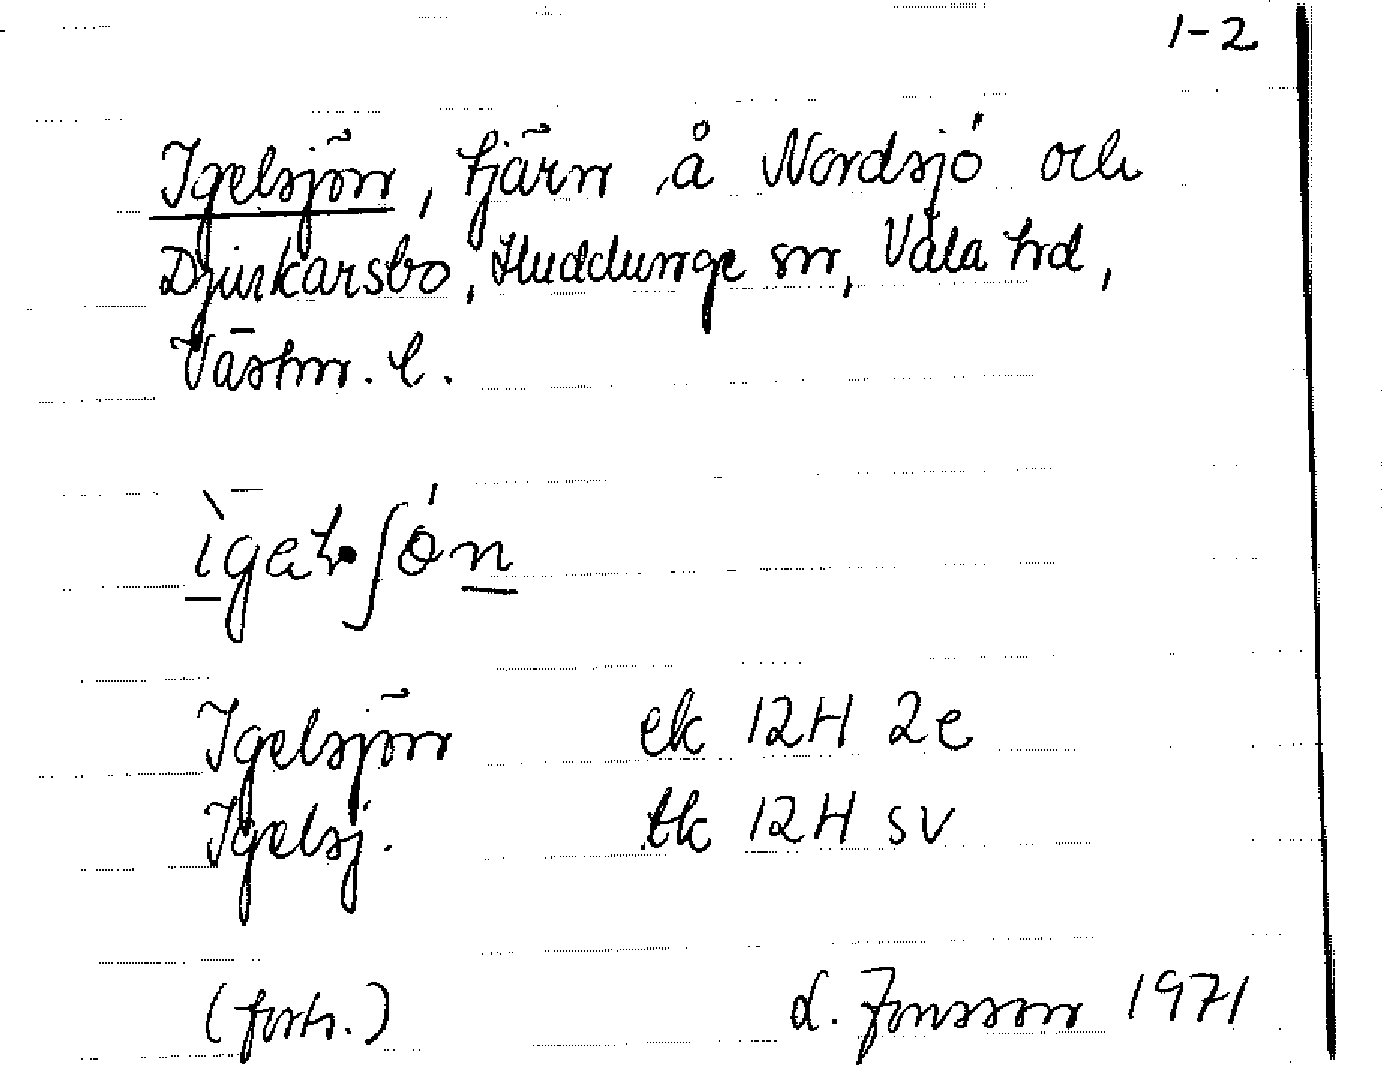 1-2
Igelsjön, tjärn å Nordsjö och
Djurkarsbo, Huddunge sn, Våla hd,
Västm. l.
Igelsjön ek 12H 2e
Igelsj. tk 12H SV
(forts.) L. Jonsson 1971